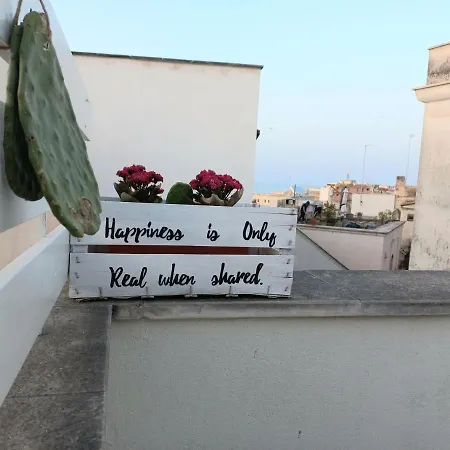 Happiness is Only
Real when shared.